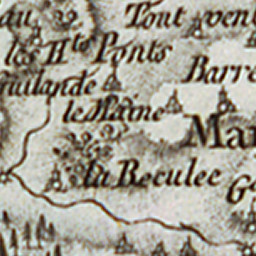 Tout vent
les Hts Ponts
Barre
uilande
le Maine
Mar
la Reculee